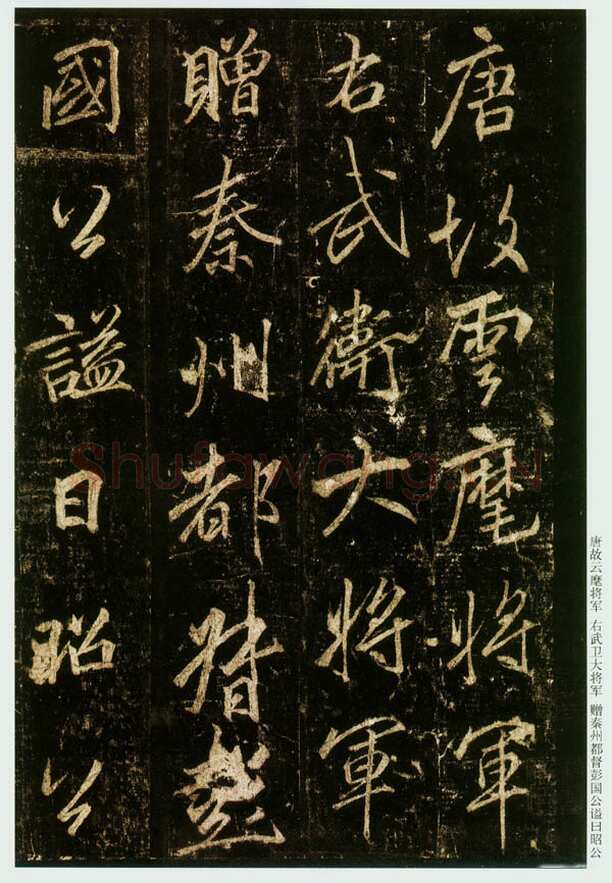 唐故雲麾將軍
右武衛大將軍
贈秦州都督彭
國公謚曰昭公
唐故云麾将军 右武卫大将军 赠秦州都督彭国公谥曰昭公
Shufawang.CN